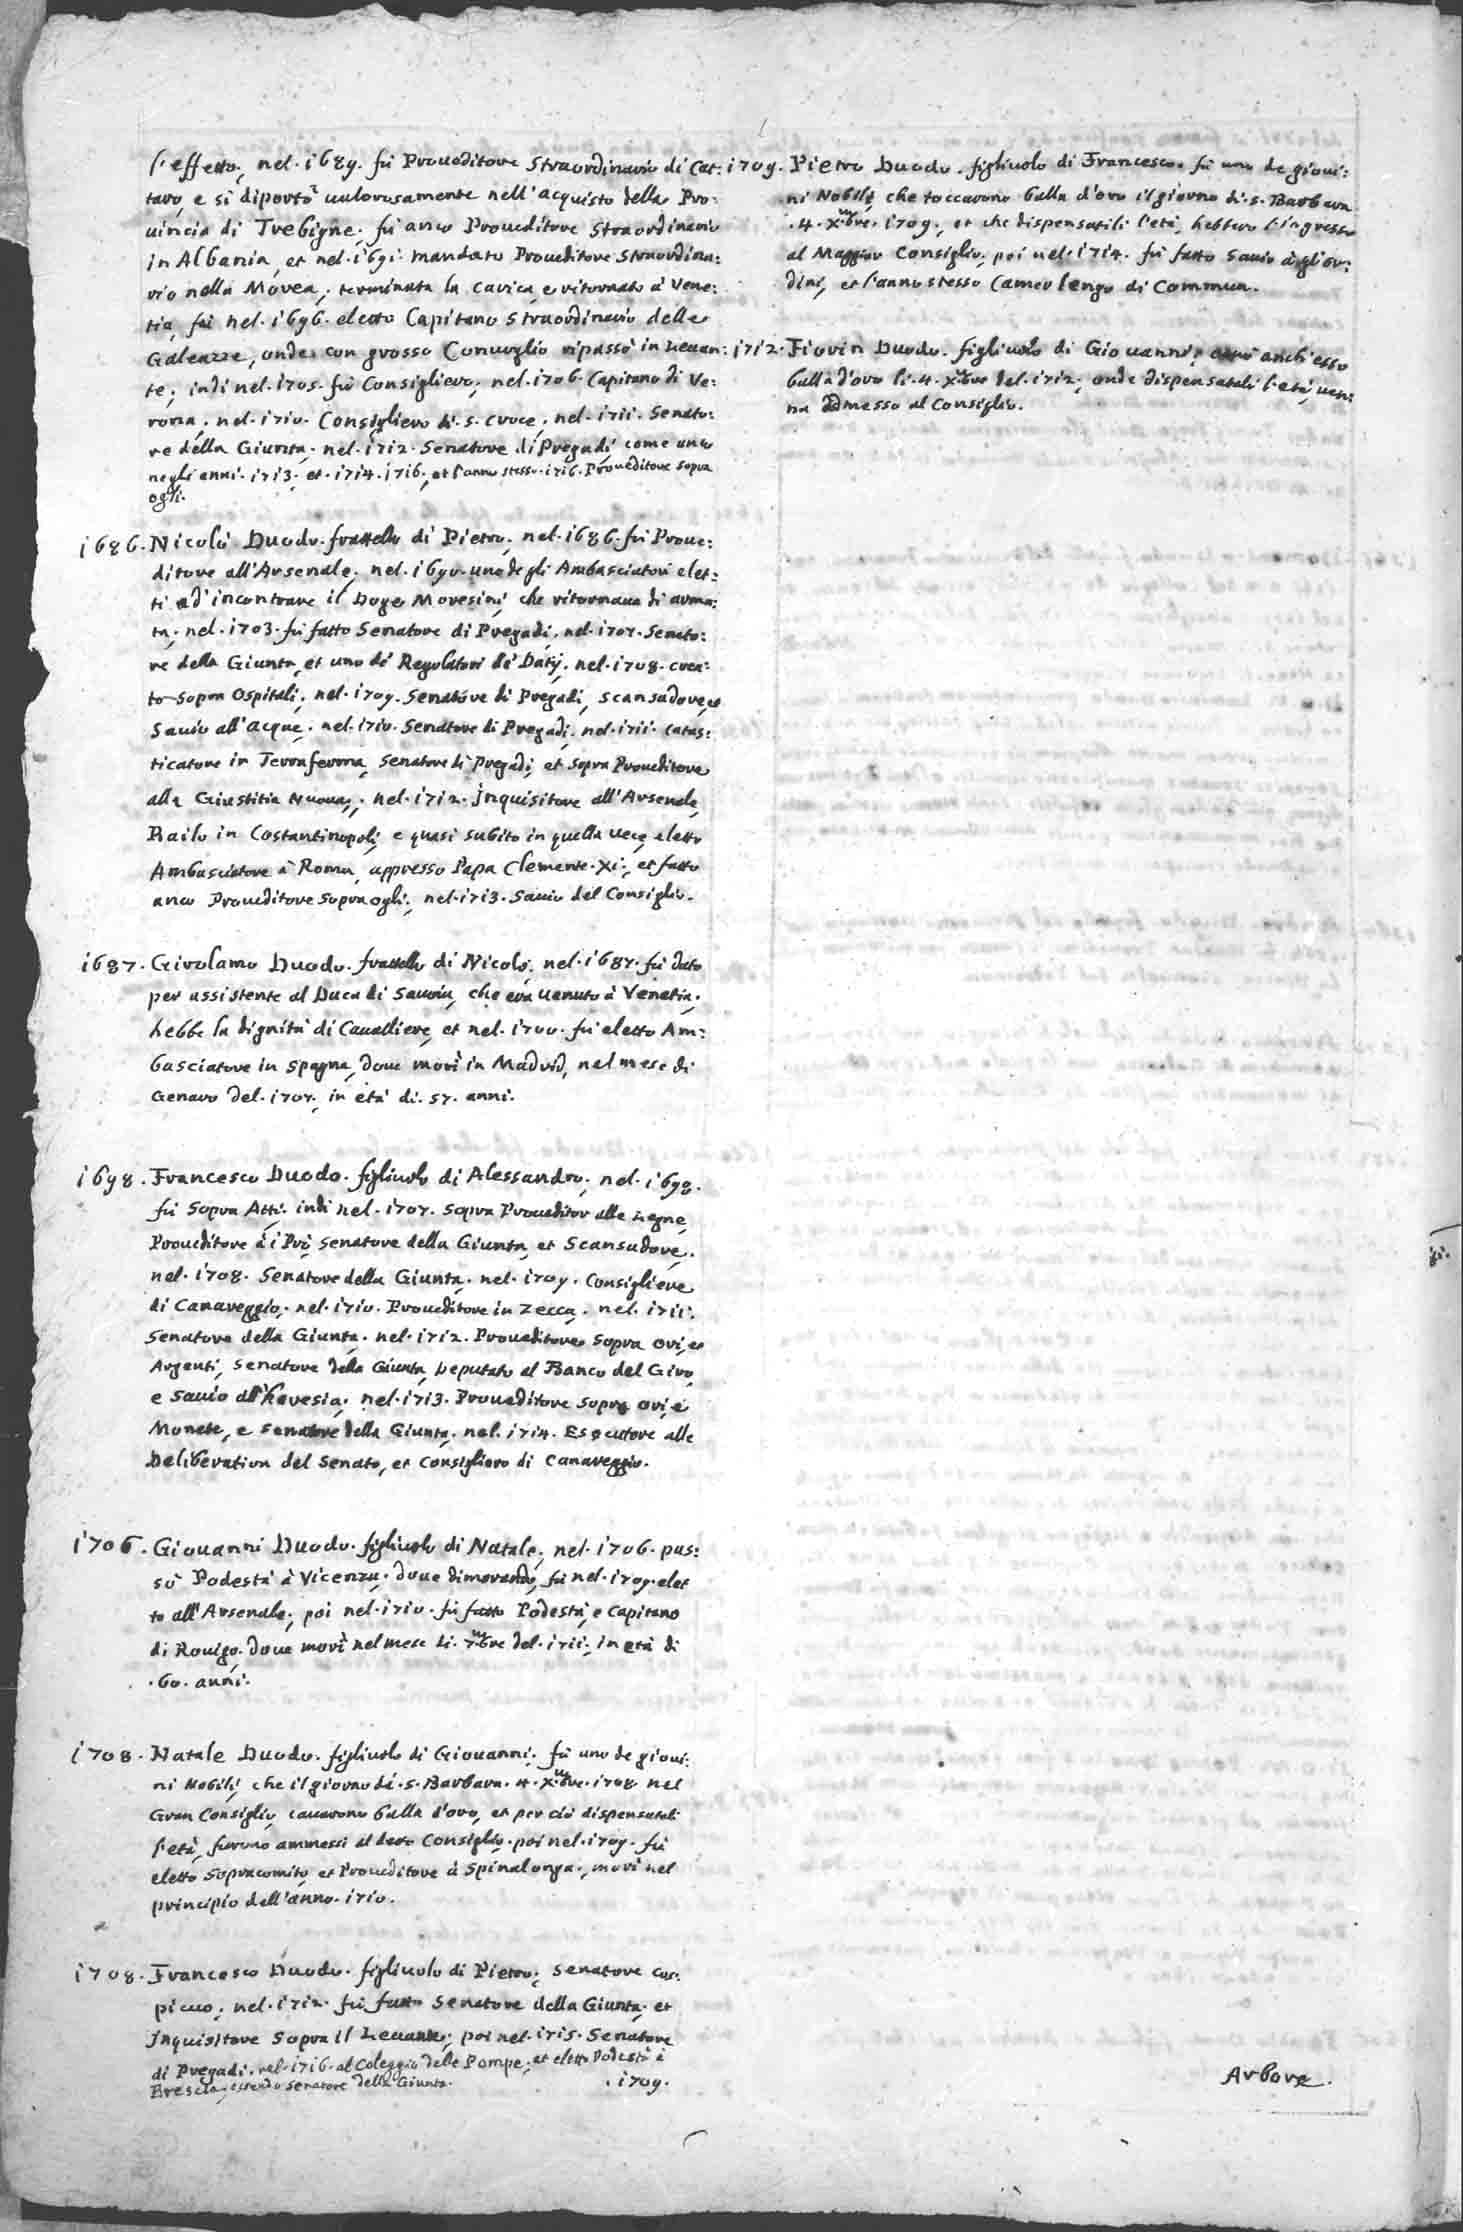 l'effetto, nel. 1689. fù Proueditore Straordinario di Cat:
taro, e si diportò ualorosamente nell'acquisto della Pro:
uincia di Trebigne, fù anco Proueditore Straordinario
in Albania, et nel. 1691. mandato Proueditore Straordina:
rio nella Morea; terminata la carica, e ritornato à Vene:
tia, fù nel. 1696. eletto Capitano Straordinario delle
Galeazze, onde con grosso Conuoglio ripassò in Leuan:
te; indi nel. 1705. fù Consigliero; nel. 1706. Capitano di Ve:
rona. nel. 1710. Consigliero di. S. Croce; nel. 1711. Senato:
re della Giunta. nel. 1712. Senatore di Pregadi, come anco
negli anni. 1713. et. 1714. 1716, et l'anno stesso. 1716. Proueditore sopra
ogli.
1686. Nicolò Duodo. frattello di Pietro, nel. 1686. fù Proue:
ditore all'Arsenale, nel. 1690. uno degli Ambasciatori elet:
ti ad'incontrare il Doge Moresini, che ritornaua di arma:
ta. nel. 1703. fù fatto Senatore di Pregadi. nel. 1707. Senato:
re della Giunta, et uno de' Regolatori de' Datij. nel. 1708. crea:
to sopra Ospitali; nel. 1709. Senatore di Pregadi, Scansadore, e
Sauio all'acque. nel. 1710. Senatore di Pregadi. nel. 1711. Catas:
ticatore in Terraferma, Senatore di Pregadi, et sopra Proueditore
alla Giustitia Nuoua. nel. 1712. Inquisitore all'Arsenale,
Bailo in Costantinopoli, e quasi subito in quella uece eletto
Ambasciatore à Roma, appresso Papa Clemente. XI., et fatto
anco Proueditore sopra ogli. nel. 1713. Sauio del Consiglio.
1687. Girolamo Duodo. frattello di Nicolò. nel. 1687. fù dato
per assistente al Duca di Sauoia, che era uenuto à Venetia.
hebbe la dignità di Caualliere, et nel. 1700. fù eletto Am:
basciatore in Spagna, doue morì in Madrid, nel mese di
Genaro del. 1707. in età di. 57. anni.
1698. Francesco Duodo. figliuolo di Alessandro, nel. 1698.
fù sopra Atti. indi nel. 1707. sopra Proueditor alle Legne,
Proueditore à i Prò, Senatore della Giunta, et Scansadore.
nel. 1708. Senatore della Giunta. nel. 1709. Consigliere
di Canareggio. nel. 1710. Proueditore in Zecca. nel. 1711.
Senatore della Giunta. nel. 1712. Proueditore sopra ori, e
Argenti, Senatore della Giunta, Deputato al Banco del Giro,
e Sauio all'heresia. nel. 1713. Proueditore sopra ori, e
Monete, e Senatore della Giunta. nel. 1714. Esecutore alle
Deliberation del Senato, et Consigliero di Canareggio.
1706. Giouanni Duodo. figliuolo di Natale, nel. 1706. pas:
sò Podestà à Vicenza. doue dimorando, fù nel. 1709. elet
to all'Arsenale; poi nel. 1710. fù fatto Podestà, e Capitano
di Rouigo. doue morì nel mese di. 7mbre del. 1711. in età di
. 60. anni.
1708. Natale Duodo. figliuolo di Giouanni. fù uno de gioui:
ni Nobili, che il giorno di. S. Barbara. 4. Xmbre. 1708 nel
Gran Consiglio, cauarono balla d'oro, et per ciò dispensatali
l'età, furono ammessi al detto Consiglio. poi nel. 1709. fù
eletto Sopracomito, et Proueditore à Spinalonga., morì nel
principio dell'anno. 1710.
1708. Francesco Duodo. figliuolo di Pietro, Senatore cos:
picuo, nel. 1712. fù fatto Senatore della Giunta. et
Inquisitore sopra il Leuante; poi nel. 1715. Senatore
di Pregadi. nel. 1716. al Coleggio delle Pompe, et eletto Podestà à
Brescia, essendo Senatore della Giunta.
. 1709.
1709. Pietro Duodo. figliuolo di Francesco. fù uno de gioui:
ni Nobili, che toccarono balla d'oro il giorno di. S. Barbara
. 4. Xmbre. 1709., et che dispensatili l'età, hebbero l'ingresso
al Maggior Consiglio, poi nel. 1714. fù fatto Sauio à gli or:
dini, et l'anno stesso Camerlengo di Commun.
1712. Fiorin Duodo. figliuolo di Giouanni, anch'esso
balla d'oro li. 4. Xmbre del. 1712; onde dispensatali l'età, uen:
na admesso al Consiglio.
Arbore.